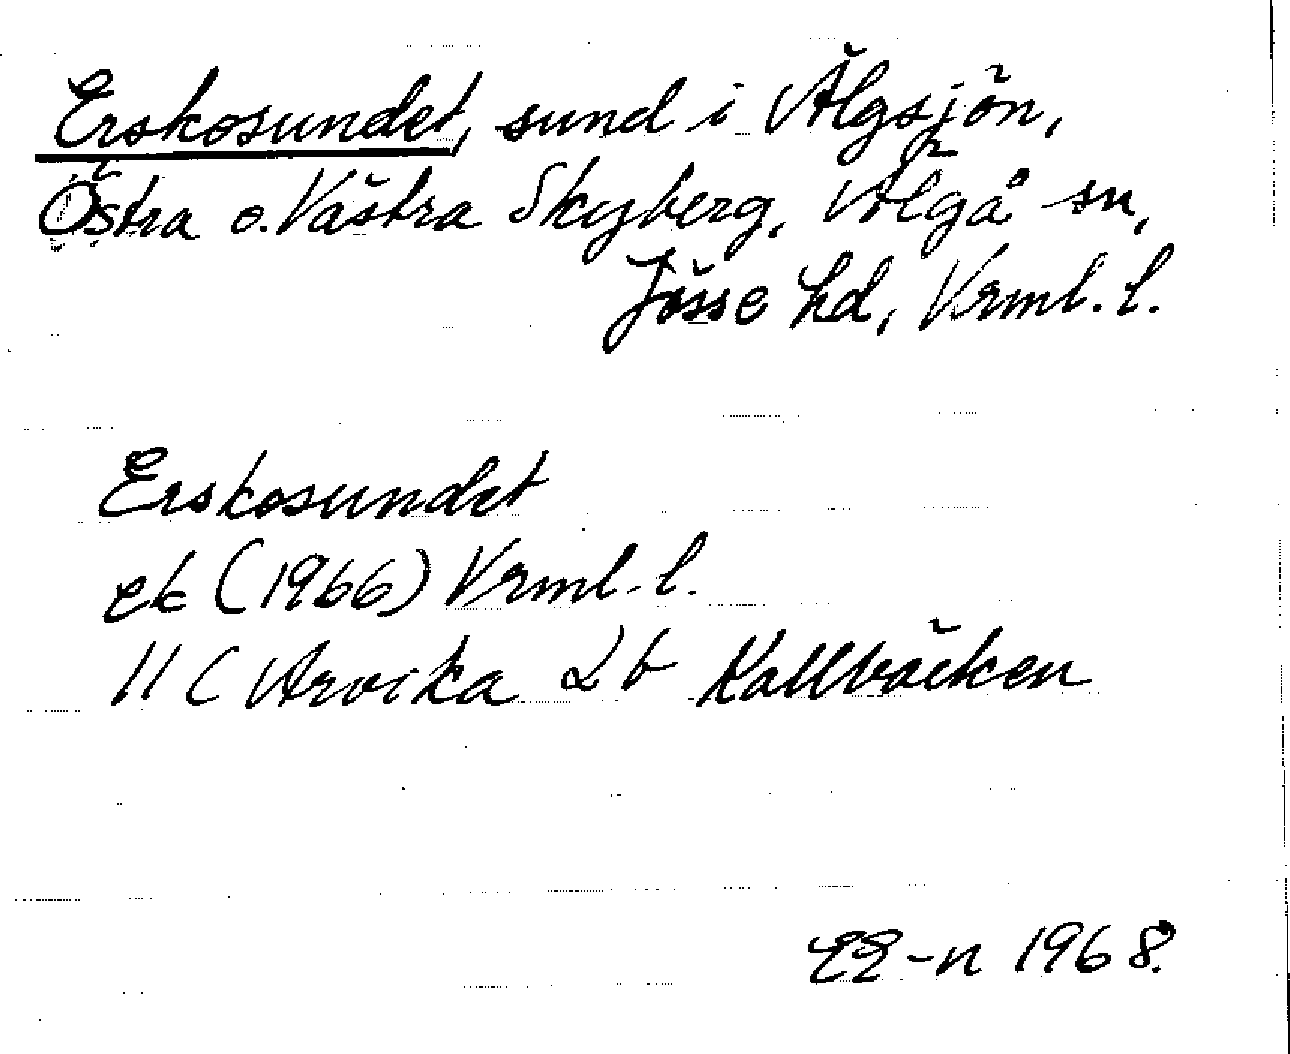 Erskosundet, sund i Älgsjön,
Östra o. Västra Skyberg, Älgå sn,
Jösse hd, Vrml. l.
Erskosundet
ek (1966) Vrml. l.
11 C Arvika 2 b Kallbäcken
EE-n 1968.